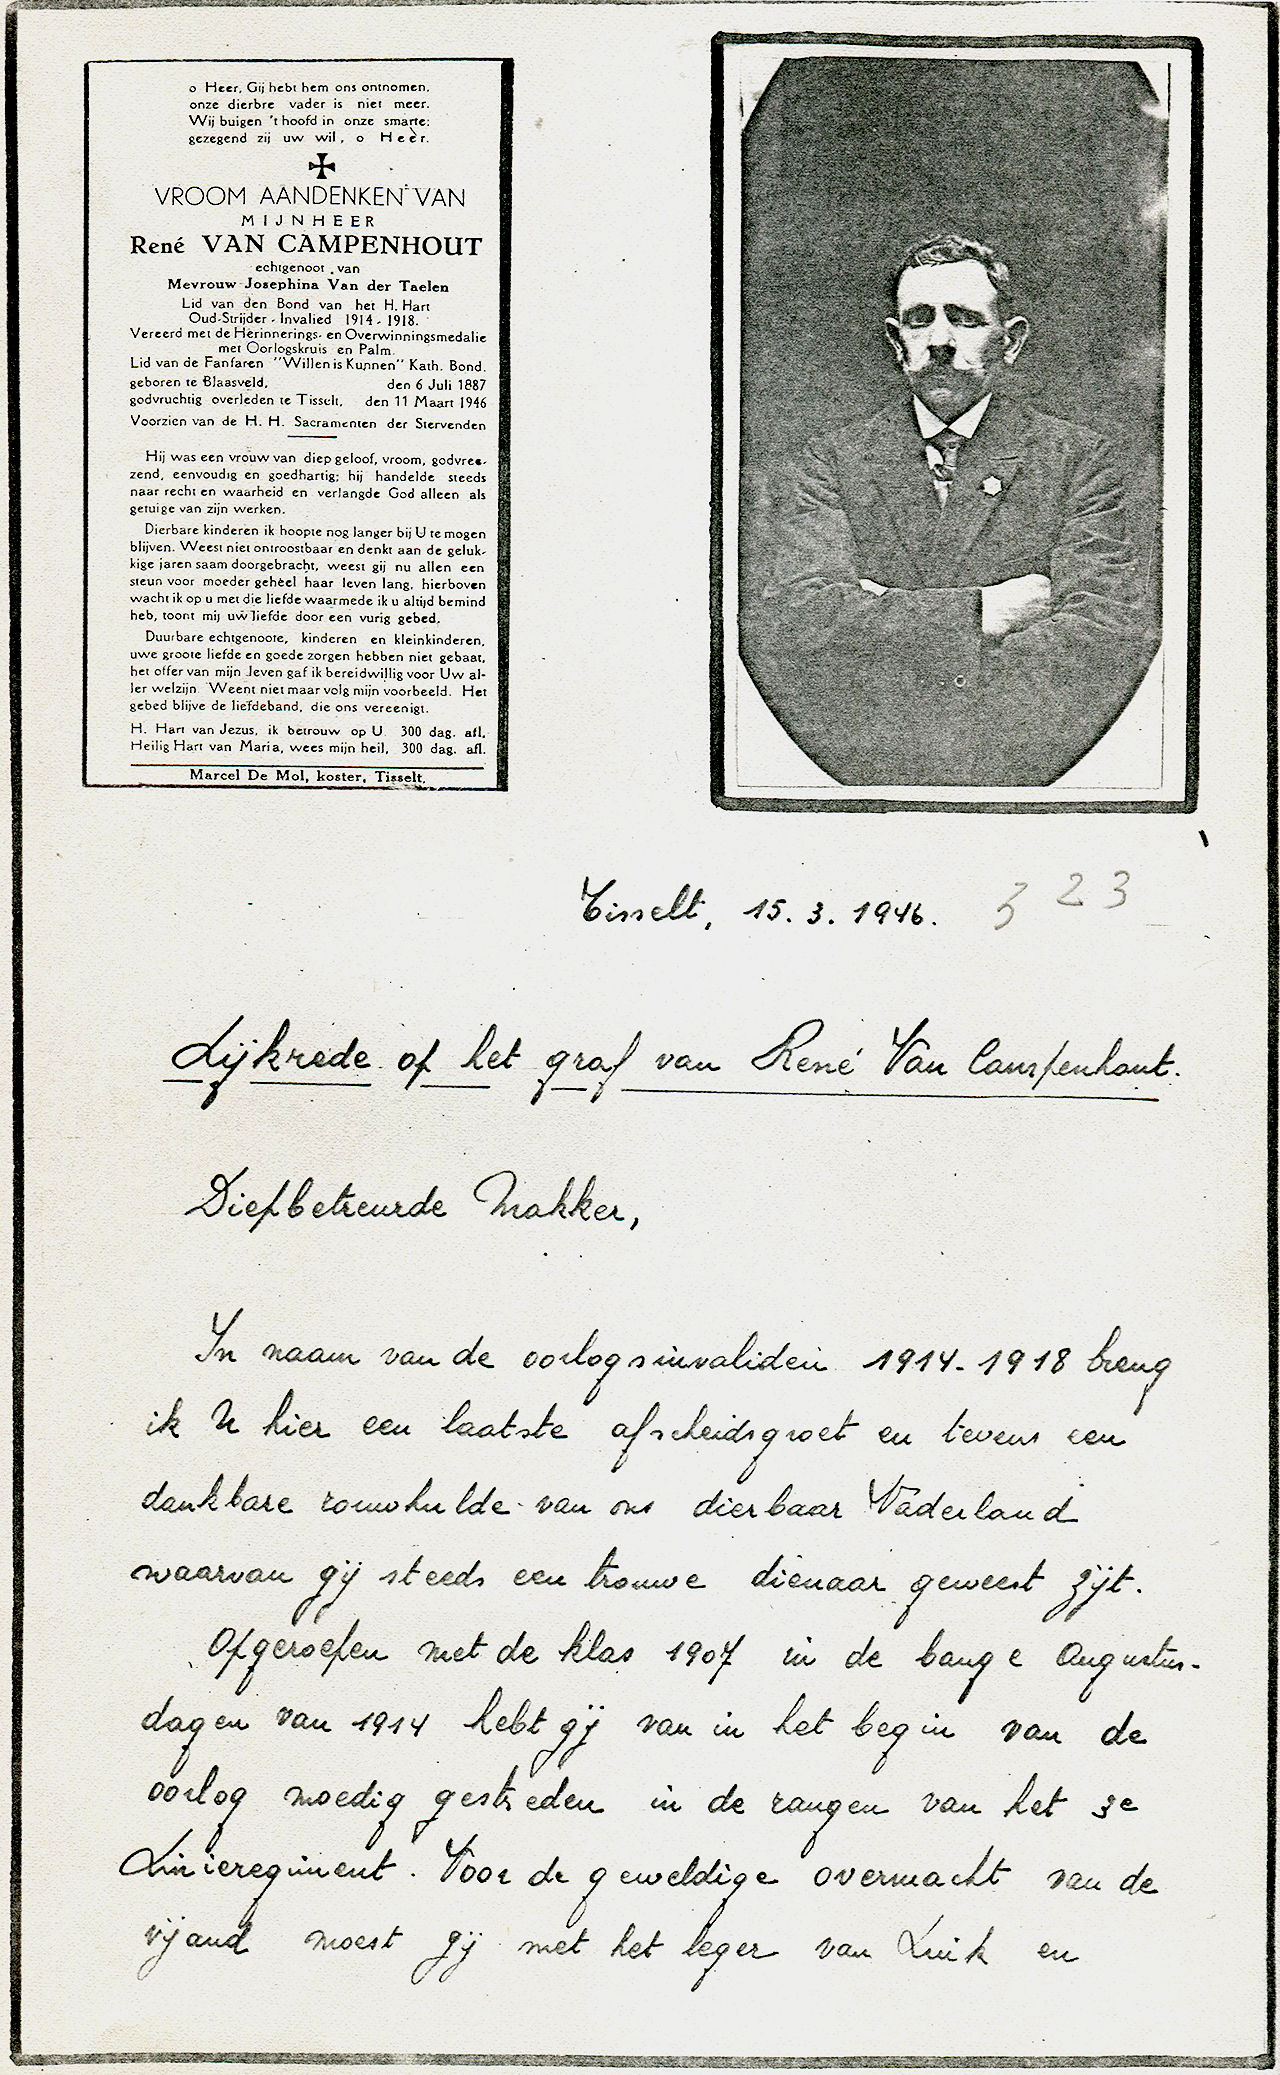 o Heer, Gij hebt hem ons ontnomen,
onze dierbre vader is niet meer.
Wij buigen 't hoofd in onze smarte;
gezegend zij uw wil, o Heer.
VROOM AANDENKEN VAN
MIJNHEER
René VAN CAMPENHOUT
echtgenoot van
Mevrouw Josephina Van der Taelen
Lid van den Bond van het H. Hart
Oud-Strijder - Invalied 1914 - 1918.
Vereerd met de Herinnerings- en Overwinningsmedalie
met Oorlogskruis en Palm.
Lid van de Fanfaren "Willen is Kunnen" Kath. Bond.
geboren te Blaasveld, den 6 Juli 1887
godvruchtig overleden te Tisselt, den 11 Maart 1946
Voorzien van de H. H. Sacramenten der Stervenden
Hij was een vrouw van diep geloof, vroom, godvree-
zend, eenvoudig en goedhartig; hij handelde steeds
naar recht en waarheid en verlangde God alleen als
getuige van zijn werken.
Dierbare kinderen ik hoopte nog langer bij U te mogen
blijven. Weest niet ontroostbaar en denkt aan de geluk-
kige jaren saam doorgebracht, weest gij nu allen een
steun voor moeder geheel haar leven lang, hierboven
wacht ik op u met die liefde waarmede ik u altijd bemind
heb, toont mij uw liefde door een vurig gebed.
Duurbare echtgenoote, kinderen en kleinkinderen,
uwe groote liefde en goede zorgen hebben niet gebaat,
het offer van mijn leven gaf ik bereidwillig voor Uw al-
ler welzijn. Weent niet maar volg mijn voorbeeld. Het
gebed blijve de liefdeband, die ons vereenigt.
H. Hart van Jezus, ik betrouw op U 300 dag. afl.
Heilig Hart van Maria, wees mijn heil, 300 dag. afl.
Marcel De Mol, koster, Tisselt.
Tisselt, 15.3.1946. 323
Lijkrede op het graf van René Van Campenhout.
Diepbetreurde Makker,
In naam van de oorlogsinvaliden 1914-1918 breng
ik U hier een laatste afscheidsgroet en tevens een
dankbare rouwhulde van ons dierbaar Vaderland
waarvan gij steeds een trouwe dienaar geweest zijt.
Opgeroepen met de klas 1907 in de bange Augustus-
dagen van 1914 hebt gij van in het begin van de
oorlog moedig gestreden in de rangen van het 3e
Linieregiment. Voor de geweldige overmacht van de
vijand moest gij met het leger van Luik en